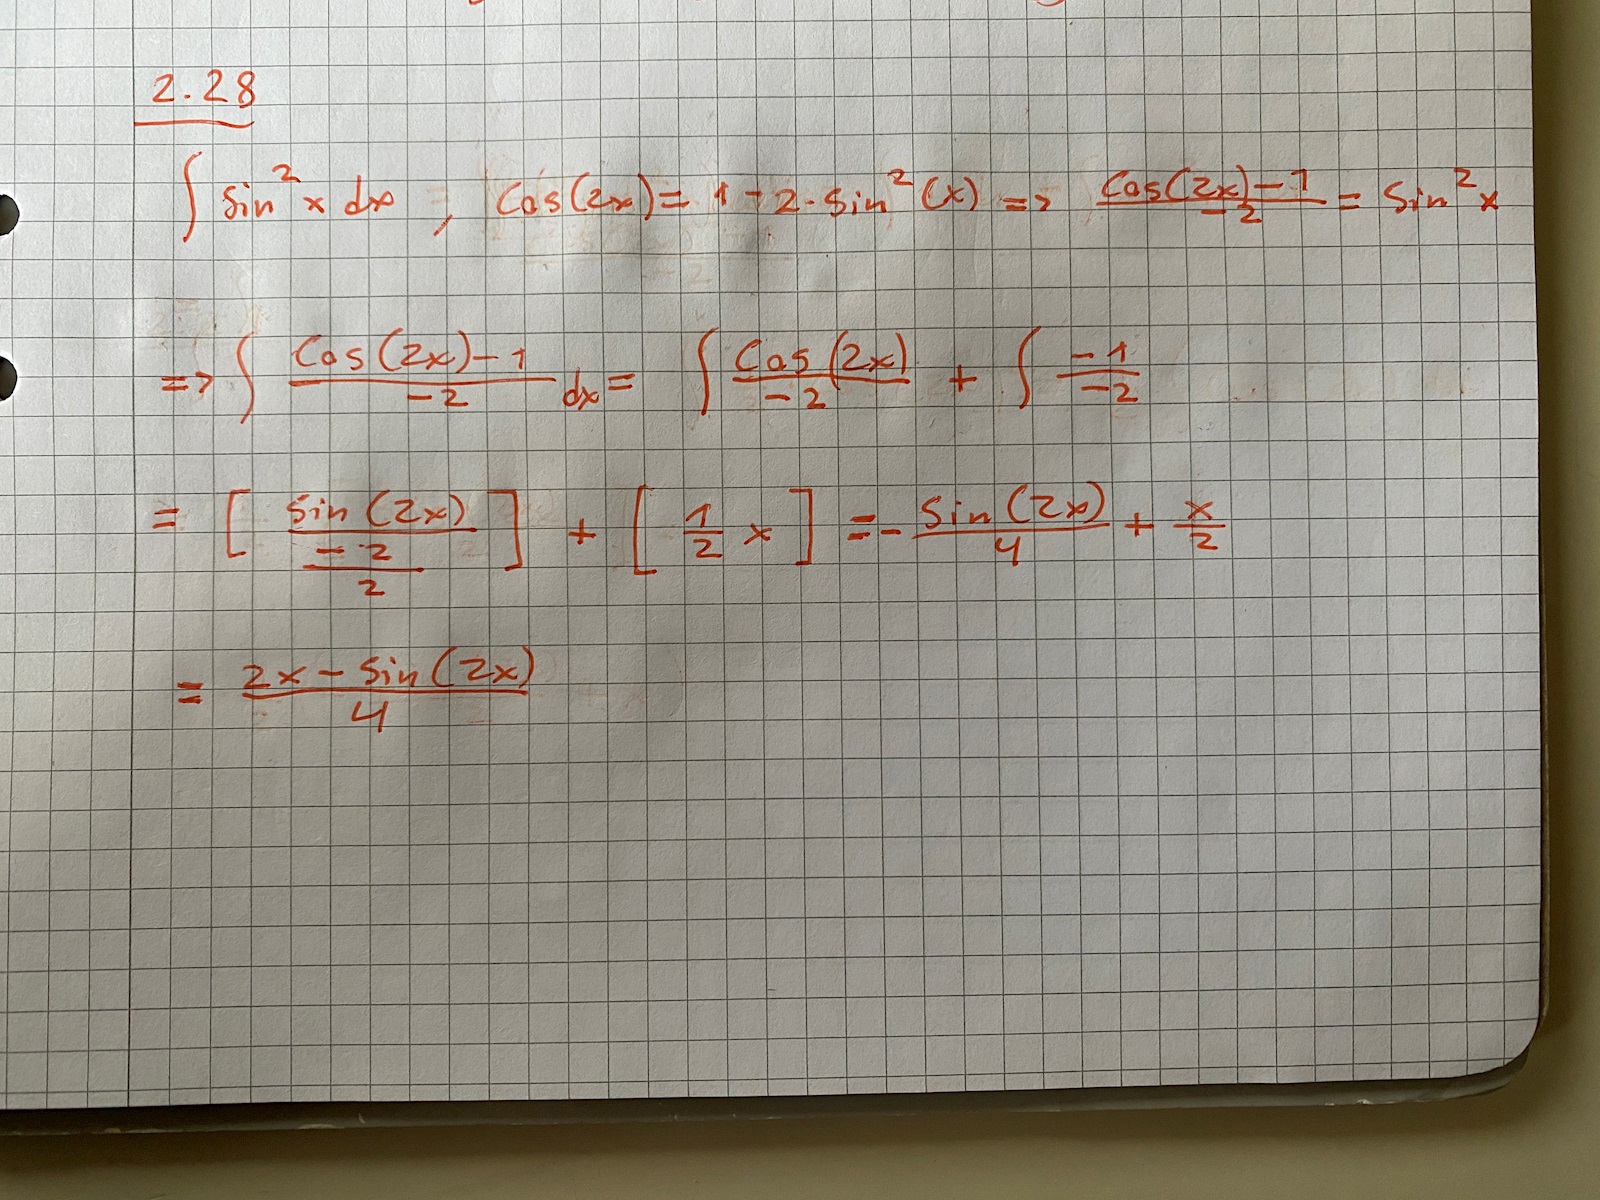 2.28
∫ sin²x dx , cos(2x) = 1 - 2·sin²(x) => (cos(2x)-1)/-2 = sin²x
=> ∫ (cos(2x)-1)/-2 dx = ∫ cos(2x)/-2 + ∫ -1/-2
= [ sin(2x)/-2/2 ] + [ 1/2 x ] = - sin(2x)/4 + x/2
= (2x - sin(2x))/4